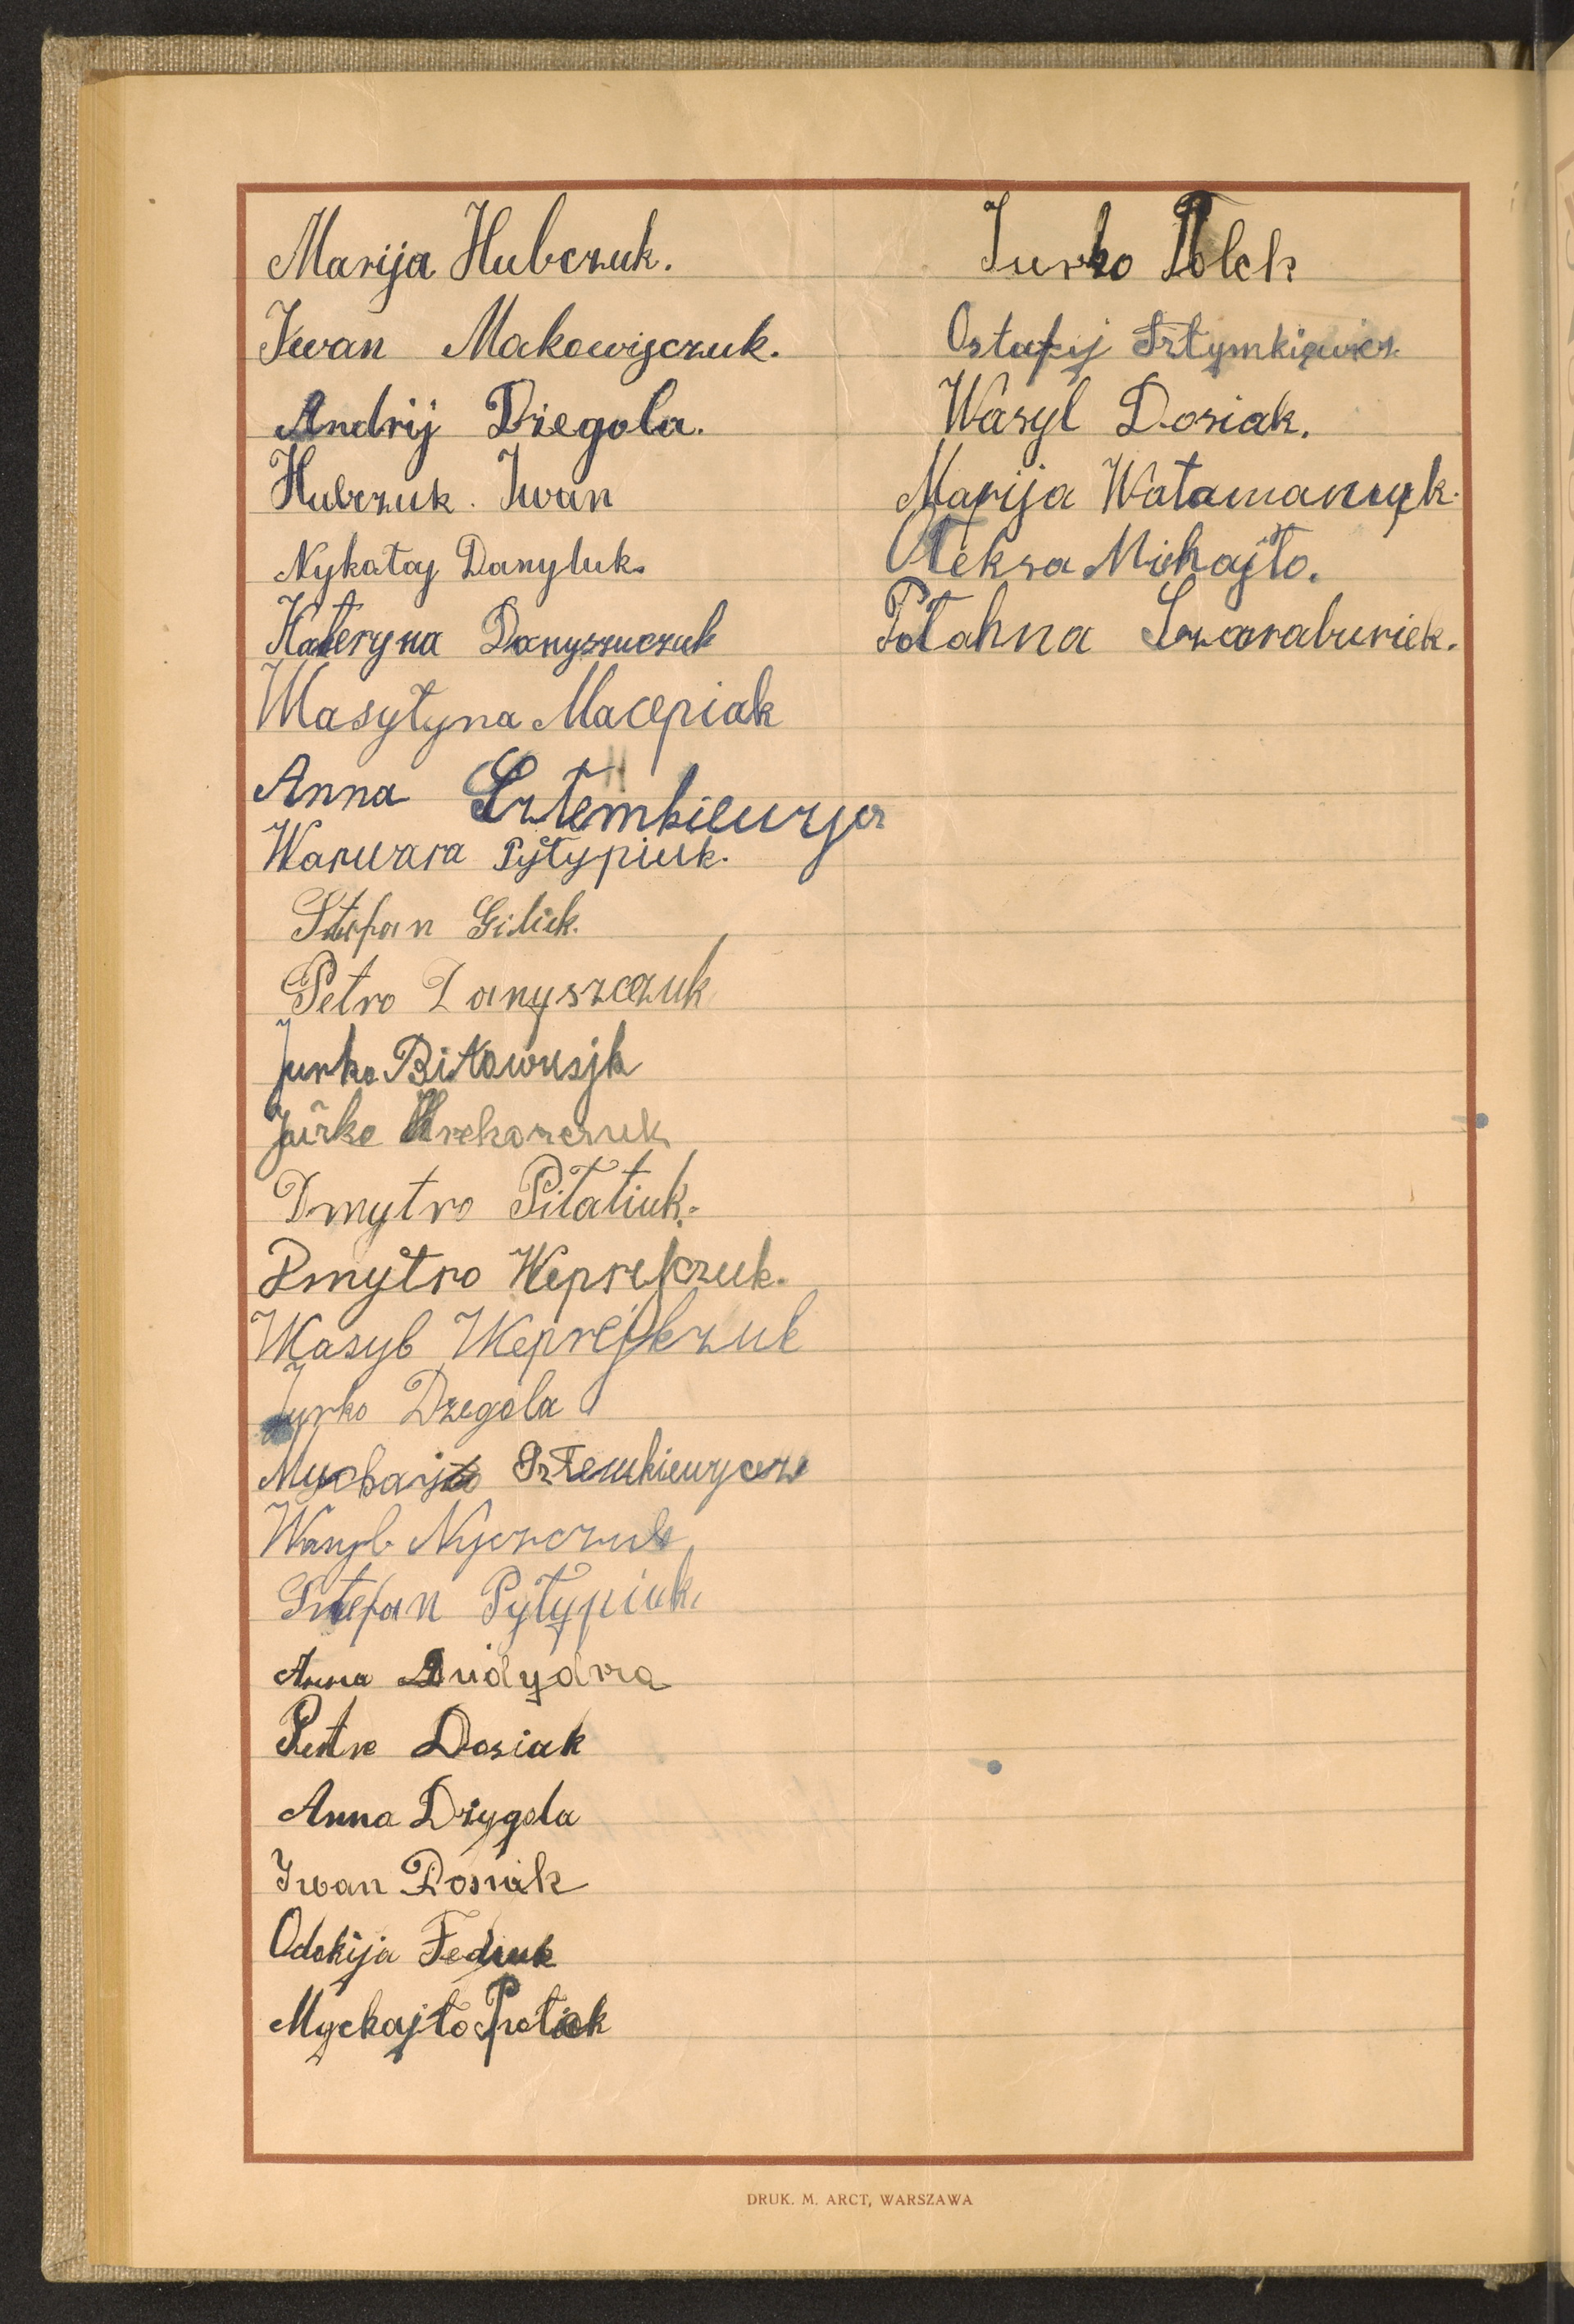 Marija Hubczuk.
Iwan Makowijczuk.
Andrij Dzegola.
Hubczuk. Iwan
Nykołaj Danyluk.
Kateryna Danyszczuk
Wasyłyna Macepiak
Anna Sztemkiewycz
Warwara Pyłypiuk.
Stefan Gilick.
Petro Danyszczuk
Jurko Biłowusjk
Jurko Hrehorczuk
Dmytro Piłatiuk.
Dmytro Weprejczuk.
Wasyb Weprejkzuk
Jurko Dzegola
Mychajło Sztemkiewycz
Wasyl Nyczczuk
Sztefan Pyłypiuk.
Anna Didydra
Petro Dosiak
Anna Dzygola
Iwan Dosiak
Odokija Fediuk
Myckajło Protiak
Jurko Polek
Ostafij Sztymkiewicz
Wasyl Dosiak.
Marija Watamaniuk.
Ołeksa Michajło.
Połahna Szaraburiek.
DRUK. M. ARCT, WARSZAWA